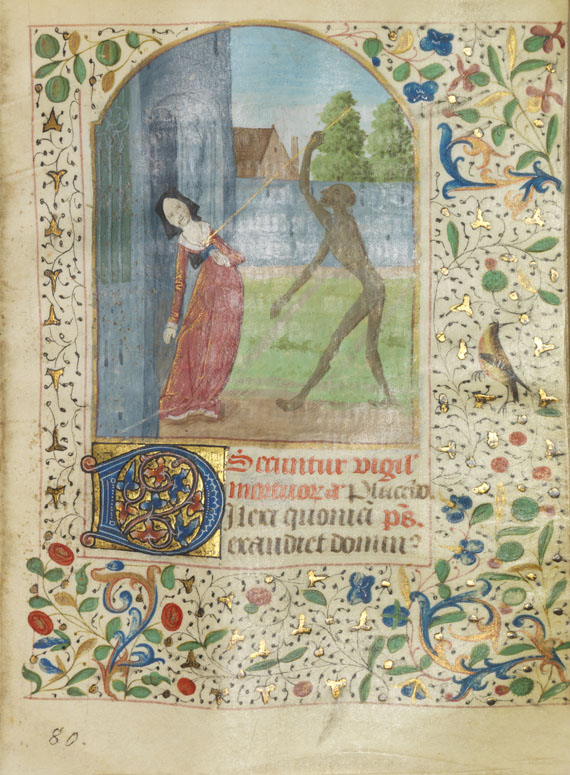 Secuntur vigił
mortuoꝝ añ Placebo.
Dilexi quoniā pš.
exaudiet domin⁹
80.